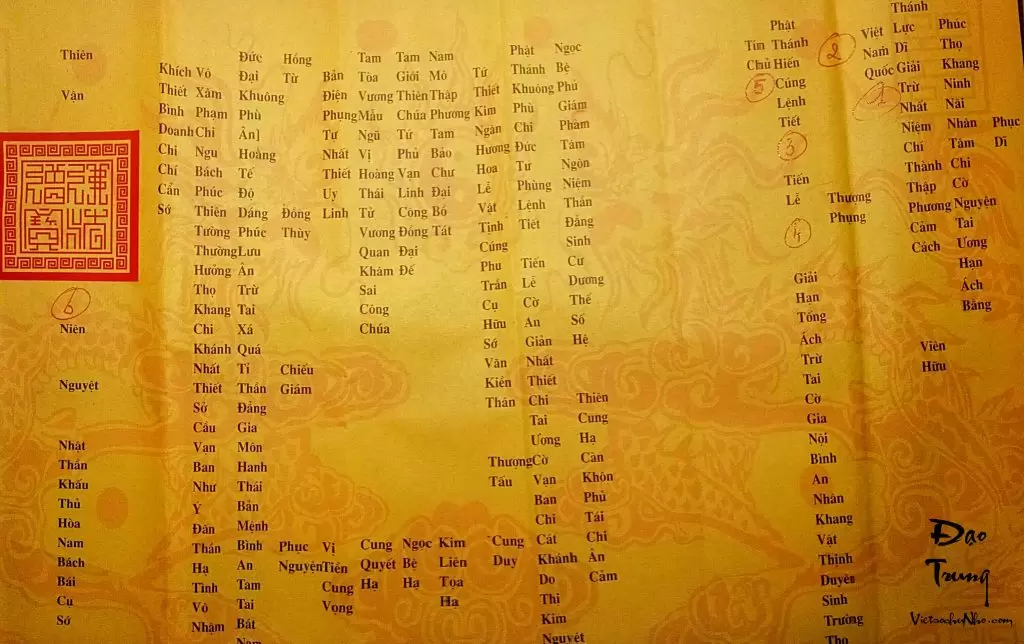 Phục Dĩ
Phúc Thọ Khang Ninh Nãi Nhân Tâm Chi Cờ Nguyện Tai Ương Hạn Ách Bằng
Thánh Lực Dĩ Giải Trừ Nhất Niệm Chí Thành Thập Phương Cảm Cách
Viên Hữu
Việt Nam Quốc
1
2
Thượng Phụng
Phật Thánh Hiến Cúng Lệnh Tiết
3
Tiến Lễ
4
Giải Hạn Tống Ách Trừ Tai Cờ Gia Nội Bình An Nhân Khang Vật Thịnh Duyên Sinh Trường Thọ
Tín Chủ
5
Ngọc Bệ Phủ Giám Phàm Tâm Ngôn Niệm Thần Đẳng Sinh Cư Dương Thế Số Hệ
Thiên Cung Hạ Càn Khôn Phủ Tái Chi Ân Cảm
Phật Thánh Khuông Phù Chi Đức Tư Phùng Lệnh Tiết
Tiến Lễ Cờ An Giản Nhất Thiết Chi Tai Ương Cờ Vạn Ban Chi Cát Khánh Do Thi Kim Nguyệt
Tứ Thiết Kim Ngân Hương Hoa Lễ Vật Tịnh Cúng Phu Trần Cụ Hữu Sớ Văn Kiền Thân
Thượng Tấu
Cung Duy
Nam Mô Thập Phương Tam Bảo Chư Đại Bồ Tát
Kim Liên Tọa Hạ
Tam Giới Thiên Chúa Tứ Phủ Vạn Linh Công Đồng Đại Đế
Ngọc Bệ Hạ
Tam Tòa Vương Mẫu Ngũ Vị Hoàng Thái Từ Vương Quan Khâm Sai Công Chúa
Cung Quyết Hạ
Bản Điện Phụng Tự Nhất Thiết Uy Linh
Vị Tiền Cung Vọng
Hồng Từ
Đông Thùy
Chiếu Giám
Phục Nguyện
Đức Đại Khuông Phù Ân] Hoằng Tế Độ Dáng Phúc Lưu Ân Trừ Tai Xá Quá Tỉ Thần Đẳng Gia Môn Hanh Thái Bản Mệnh Bình An Tam Tai Bát
Vô Xăm Phạm Chi Ngu Bách Phúc Thiên Tường Thường Hưởng Thọ Khang Chi Khánh Nhất Thiết Sở Cầu Vạn Ban Như Ý Đãn Thần Hạ Tình Vô Nhậm
Khích Thiết Bình Doanh Chi Chí Cẩn Sớ
Thiên Vận
6
Niên
Nguyệt
Nhật Thần Khấu Thủ Hòa Nam Bách Bái Cụ Sớ
Đạo Trung
VietsochuNho.com